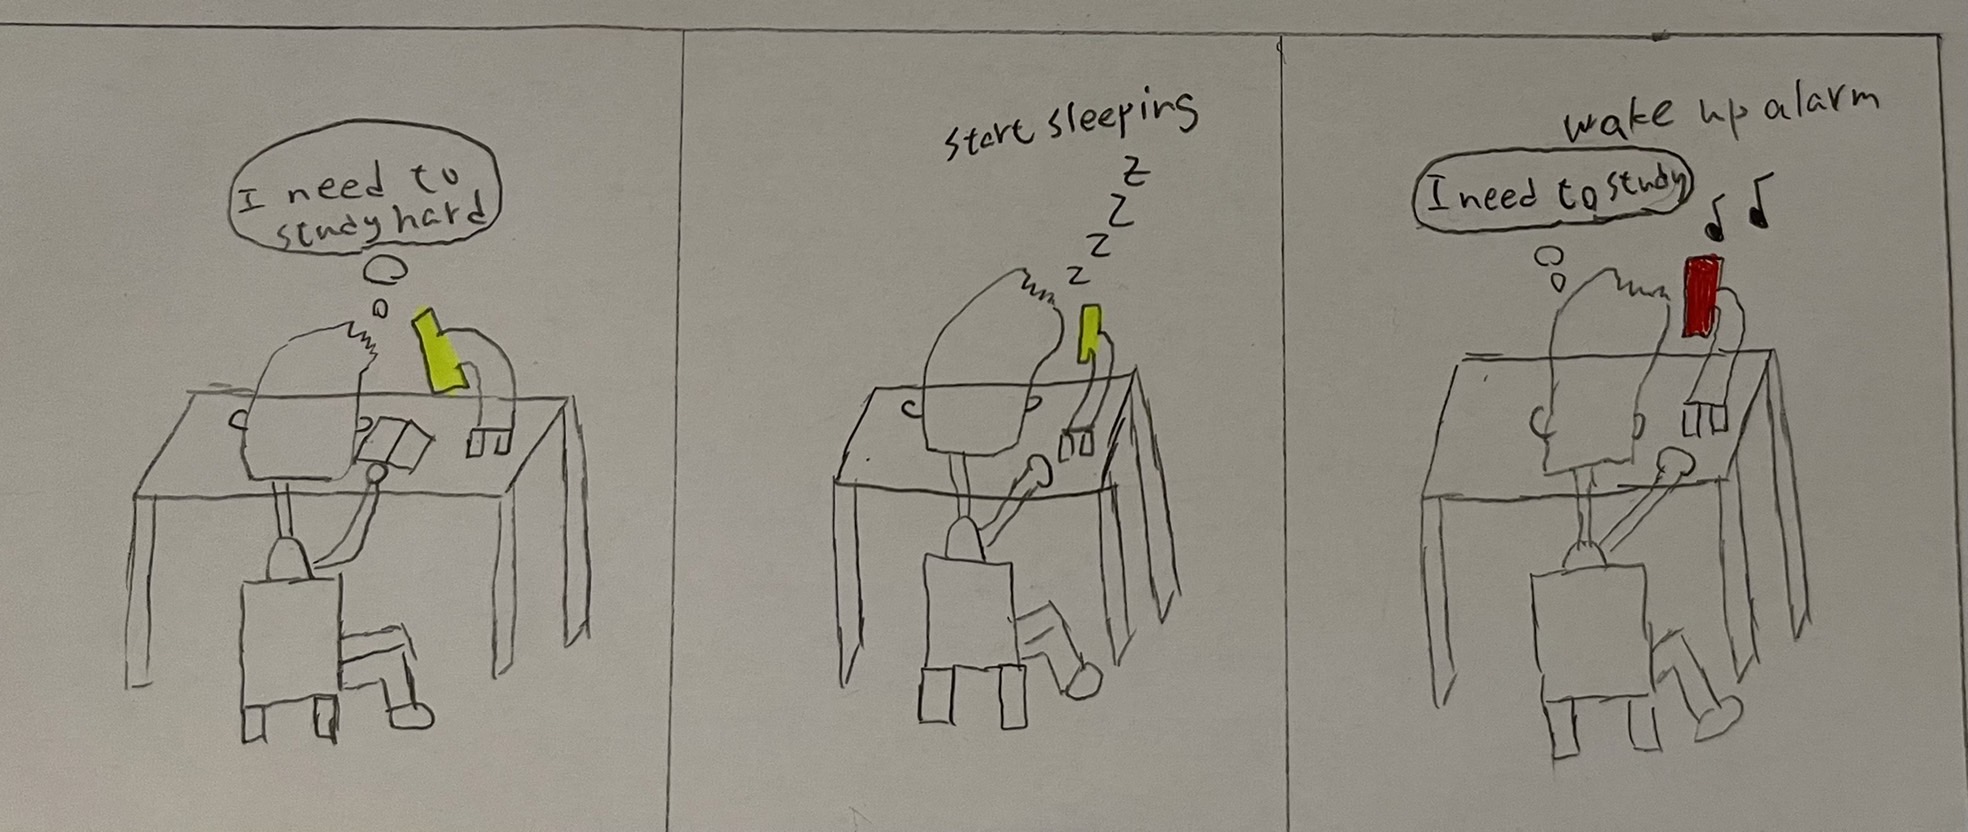 I need to
study hard
start sleeping
z
z
z
z
wake up alarm
I need to study